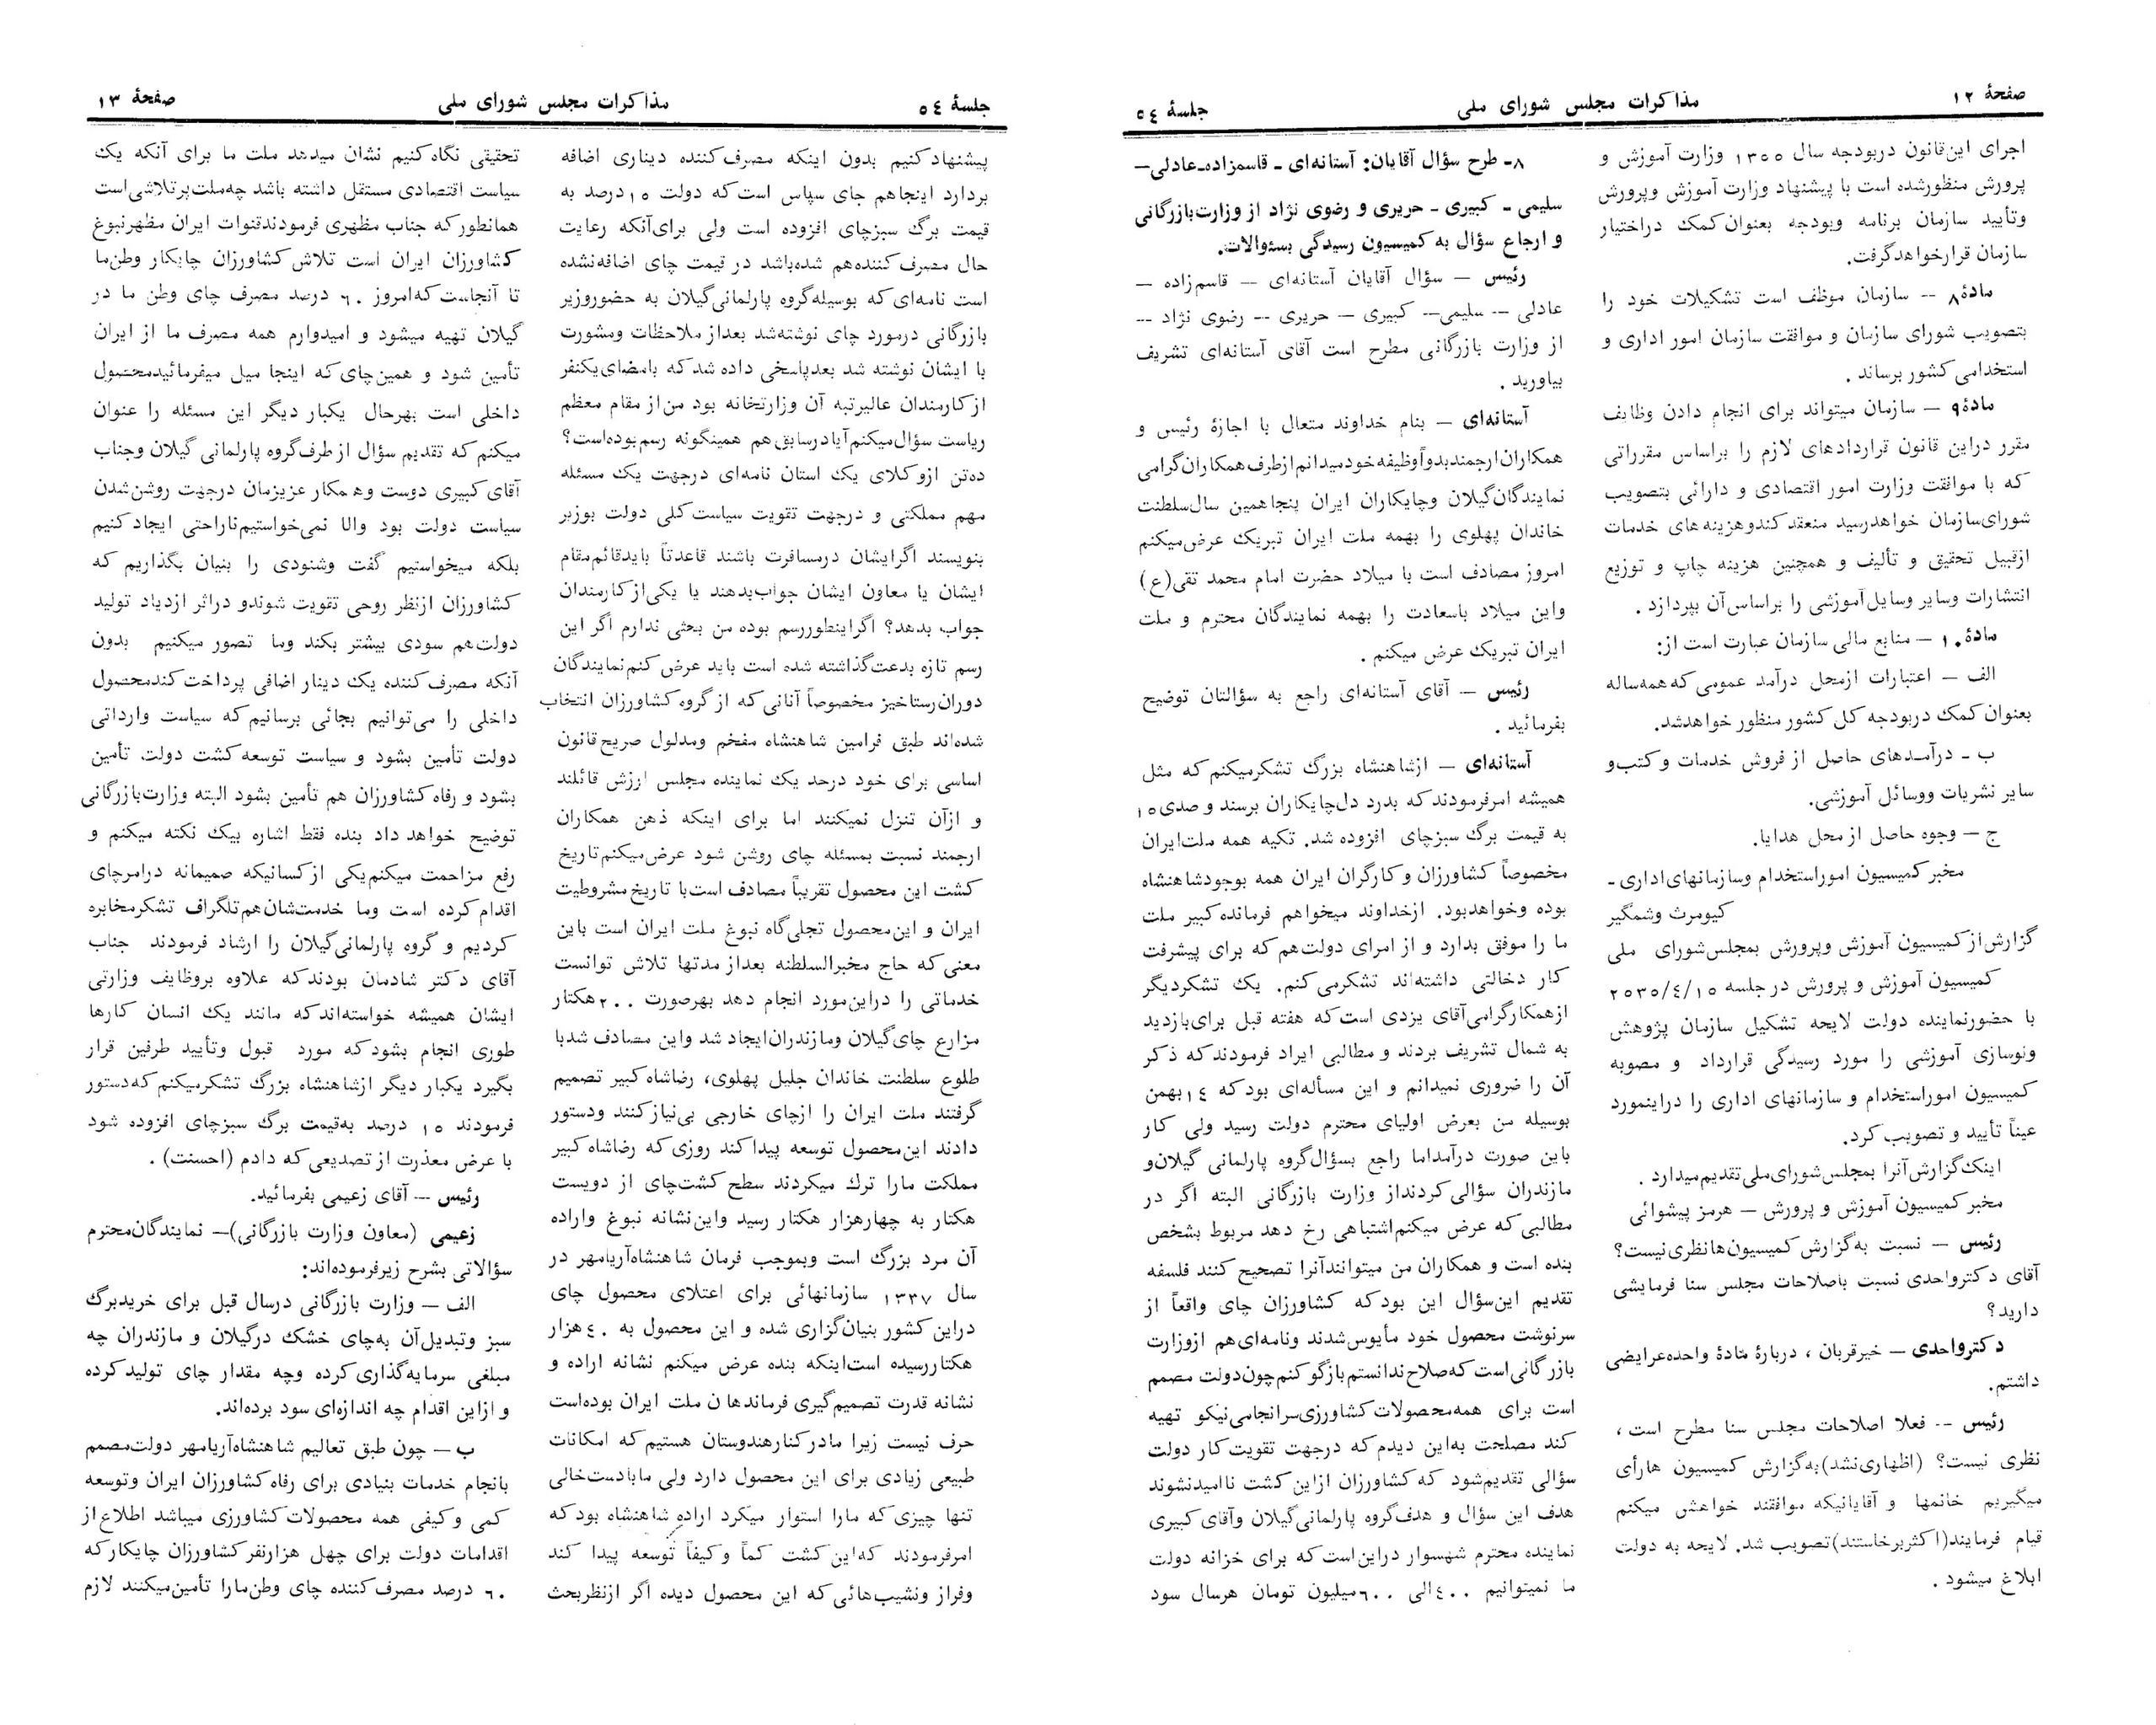 صفحهٔ ۱۲
مذاکرات مجلس شورای ملی
جلسهٔ ۵۴
اجرای این قانون در بودجه سال ۱۳۵۵ وزارت آموزش و
پرورش منظور شده است با پیشنهاد وزارت آموزش و پرورش
و تأیید سازمان برنامه و بودجه بعنوان کمک در اختیار
سازمان قرار خواهد گرفت.
مادهٔ ۸ – سازمان موظف است تشکیلات خود را
بتصویب شورای سازمان و موافقت سازمان امور اداری و
استخدامی کشور برساند .
مادهٔ ۹ – سازمان میتواند برای انجام دادن وظایف
مقرر در این قانون قراردادهای لازم را براساس مقرراتی
که با موافقت وزارت امور اقتصادی و دارائی بتصویب
شورای سازمان خواهد رسید منعقد کند و هزینه های خدمات
از قبیل تحقیق و تألیف و همچنین هزینه چاپ و توزیع
انتشارات و سایر وسایل آموزشی را براساس آن بپردازد .
مادهٔ ۱۰ – منابع مالی سازمان عبارت است از:
الف – اعتبارات از محل درآمد عمومی که همه ساله
بعنوان کمک در بودجه کل کشور منظور خواهد شد.
ب ـ درآمدهای حاصل از فروش خدمات و کتب و
سایر نشریات و وسائل آموزشی.
ج – وجوه حاصل از محل هدایا.
مخبر کمیسیون امور استخدام و سازمانهای اداری ـ
کیومرث وشمگیر
گزارش از کمیسیون آموزش و پرورش بمجلس شورای ملی
کمیسیون آموزش و پرورش در جلسه ۲۵۳۵/۴/۱۵
با حضور نماینده دولت لایحه تشکیل سازمان پژوهش
و نوسازی آموزشی را مورد رسیدگی قرار داد و مصوبه
کمیسیون امور استخدام و سازمانهای اداری را در اینمورد
عیناً تأیید و تصویب کرد.
اینک گزارش آنرا بمجلس شورای ملی تقدیم میدارد .
مخبر کمیسیون آموزش و پرورش – هرمز پیشوائی
رئیس – نسبت به گزارش کمیسیون ها نظری نیست؟
آقای دکتر واحدی نسبت باصلاحات مجلس سنا فرمایشی
دارید؟
دکتر واحدی – خیر قربان ، دربارهٔ مادهٔ واحده عرایضی
داشتم.
رئیس – فعلا اصلاحات مجلس سنا مطرح است ،
نظری نیست؟ (اظهاری نشد) به گزارش کمیسیون ها رأی
میگیریم خانمها و آقایانیکه موافقند خواهش میکنم
قیام فرمایند (اکثر برخاستند) تصویب شد. لایحه به دولت
ابلاغ میشود .
۸- طرح سؤال آقایان: آستانه‌ای ـ قاسم‌زاده ـ عادلی –
سلیمی ـ کبیری ـ حریری و رضوی نژاد از وزارت بازرگانی
و ارجاع سؤال به کمیسیون رسیدگی بسئوالات.
رئیس – سؤال آقایان آستانه‌ای – قاسم زاده –
عادلی – سلیمی – کبیری – حریری – رضوی نژاد –
از وزارت بازرگانی مطرح است آقای آستانه‌ای تشریف
بیاورید .
آستانه‌ای – بنام خداوند متعال با اجازهٔ رئیس و
همکاران ارجمند بدواً وظیفه خود میدانم از طرف همکاران گرامی
نمایندگان گیلان و چایکاران ایران پنجاهمین سال سلطنت
خاندان پهلوی را بهمه ملت ایران تبریک عرض میکنم
امروز مصادف است با میلاد حضرت امام محمد تقی (ع)
و این میلاد باسعادت را بهمه نمایندگان محترم و ملت
ایران تبریک عرض میکنم .
رئیس – آقای آستانه‌ای راجع به سؤالتان توضیح
بفرمائید .
آستانه‌ای – از شاهنشاه بزرگ تشکر میکنم که مثل
همیشه امر فرمودند که بدرد دل چایکاران برسند و صدی ۱۵
به قیمت برگ سبز چای افزوده شد. تکیه همه ملت ایران
مخصوصاً کشاورزان و کارگران ایران همه بوجود شاهنشاه
بوده و خواهد بود. از خداوند میخواهم فرمانده کبیر ملت
ما را موفق بدارد و از امرای دولت هم که برای پیشرفت
کار دخالتی داشته‌اند تشکر می کنم. یک تشکر دیگر
از همکار گرامی آقای یزدی است که هفته قبل برای بازدید
به شمال تشریف بردند و مطالبی ایراد فرمودند که ذکر
آن را ضروری نمیدانم و این مسأله‌ای بود که ۱۴ بهمن
بوسیله من بعرض اولیای محترم دولت رسید ولی کار
باین صورت درآمد اما راجع بسؤال گروه پارلمانی گیلان و
مازندران سؤالی کردند از وزارت بازرگانی البته اگر در
مطالبی که عرض میکنم اشتباهی رخ دهد مربوط بشخص
بنده است و همکاران من میتوانند آنرا تصحیح کنند فلسفه
تقدیم این سؤال این بود که کشاورزان چای واقعاً از
سرنوشت محصول خود مأیوس شدند و نامه‌ای هم از وزارت
بازرگانی است که صلاح ندانستم بازگو کنم چون دولت مصمم
است برای همه محصولات کشاورزی سرانجامی نیکو تهیه
کند مصلحت به این دیدم که در جهت تقویت کار دولت
سؤالی تقدیم شود که کشاورزان از این کشت ناامید نشوند
هدف این سؤال و هدف گروه پارلمانی گیلان و آقای کبیری
نماینده محترم شهسوار در این است که برای خزانه دولت
ما نمیتوانیم ۴۰۰ الی ۶۰۰ میلیون تومان هر سال سود
جلسهٔ ۵۴
مذاکرات مجلس شورای ملی
صفحهٔ ۱۳
پیشنهاد کنیم بدون اینکه مصرف کننده دیناری اضافه
بردارد اینجا هم جای سپاس است که دولت ۱۵ درصد به
قیمت برگ سبز چای افزوده است ولی برای آنکه رعایت
حال مصرف کننده هم شده باشد در قیمت چای اضافه نشده
است نامه‌ای که بوسیله گروه پارلمانی گیلان به حضور وزیر
بازرگانی در مورد چای نوشته شد بعد از ملاحظات و مشورت
با ایشان نوشته شد بعد پاسخی داده شد که بامضای یکنفر
از کارمندان عالیرتبه آن وزارتخانه بود من از مقام معظم
ریاست سؤال میکنم آیا در سابق هم همینگونه رسم بوده است؟
ده تن از وکلای یک استان نامه‌ای در جهت یک مسئله
مهم مملکتی و در جهت تقویت سیاست کلی دولت بوزیر
بنویسند اگر ایشان در مسافرت باشند قاعدتاً باید قائم مقام
ایشان یا معاون ایشان جواب بدهند یا یکی از کارمندان
جواب بدهد؟ اگر اینطور رسم بوده من بحثی ندارم اگر این
رسم تازه بدعت گذاشته شده است باید عرض کنم نمایندگان
دوران رستاخیز مخصوصاً آنانی که از گروه کشاورزان انتخاب
شده‌اند طبق فرامین شاهنشاه مفخم و مدلول صریح قانون
اساسی برای خود در حد یک نماینده مجلس ارزش قائلند
و از آن تنزل نمیکنند اما برای اینکه ذهن همکاران
ارجمند نسبت بمسئله چای روشن شود عرض میکنم تاریخ
کشت این محصول تقریباً مصادف است با تاریخ مشروطیت
ایران و این محصول تجلی گاه نبوغ ملت ایران است باین
معنی که حاج مخبرالسلطنه بعد از مدتها تلاش توانست
خدماتی را در این مورد انجام دهد بهرصورت ۲۰۰ هکتار
مزارع چای گیلان و مازندران ایجاد شد و این مصادف شد با
طلوع سلطنت خاندان جلیل پهلوی، رضاشاه کبیر تصمیم
گرفتند ملت ایران را از چای خارجی بی نیاز کنند و دستور
دادند این محصول توسعه پیدا کند روزی که رضاشاه کبیر
مملکت ما را ترک میکردند سطح کشت چای از دویست
هکتار به چهار هزار هکتار رسید و این نشانه نبوغ و اراده
آن مرد بزرگ است و بموجب فرمان شاهنشاه آریامهر در
سال ۱۳۳۷ سازمانهائی برای اعتلای محصول چای
در این کشور بنیان گزاری شده و این محصول به ۴۰ هزار
هکتار رسیده است اینکه بنده عرض میکنم نشانه اراده و
نشانه قدرت تصمیم گیری فرماندهان ملت ایران بوده است
حرف نیست زیرا ما در کنار هندوستان هستیم که امکانات
طبیعی زیادی برای این محصول دارد ولی ما با دست خالی
تنها چیزی که ما را استوار میکرد اراده شاهنشاه بود که
امر فرمودند که این کشت کماً و کیفاً توسعه پیدا کند
و فراز و نشیب هائی که این محصول دیده اگر از نظر بحث
تحقیقی نگاه کنیم نشان میدهد ملت ما برای آنکه یک
سیاست اقتصادی مستقل داشته باشد چه ملت پرتلاشی است
همانطور که جناب مظهری فرمودند قنوات ایران مظهر نبوغ
کشاورزان ایران است تلاش کشاورزان چایکار وطن ما
تا آنجاست که امروز ۶۰ درصد مصرف چای وطن ما در
گیلان تهیه میشود و امیدوارم همه مصرف ما از ایران
تأمین شود و همین چای که اینجا میل میفرمائید محصول
داخلی است بهرحال یکبار دیگر این مسئله را عنوان
میکنم که تقدیم سؤال از طرف گروه پارلمانی گیلان و جناب
آقای کبیری دوست و همکار عزیزمان در جهت روشن شدن
سیاست دولت بود والا نمی خواستیم ناراحتی ایجاد کنیم
بلکه میخواستیم گفت و شنودی را بنیان بگذاریم که
کشاورزان از نظر روحی تقویت شوند و در اثر ازدیاد تولید
دولت هم سودی بیشتر بکند و ما تصور میکنیم بدون
آنکه مصرف کننده یک دینار اضافی پرداخت کند محصول
داخلی را می توانیم بجائی برسانیم که سیاست وارداتی
دولت تأمین بشود و سیاست توسعه کشت دولت. تأمین
بشود و رفاه کشاورزان هم تأمین بشود البته وزارت بازرگانی
توضیح خواهد داد بنده فقط اشاره بیک نکته میکنم و
رفع مزاحمت میکنم یکی از کسانیکه صمیمانه در امر چای
اقدام کرده است و ما خدمت شان هم تلگراف تشکر مخابره
کردیم و گروه پارلمانی گیلان را ارشاد فرمودند جناب
آقای دکتر شادمان بودند که علاوه بر وظایف وزارتی
ایشان همیشه خواسته‌اند که مانند یک انسان کارها
طوری انجام بشود که مورد قبول و تأیید طرفین قرار
بگیرد یکبار دیگر از شاهنشاه بزرگ تشکر میکنم که دستور
فرمودند ۱۵ درصد به قیمت برگ سبز چای افزوده شود
با عرض معذرت از تصدیعی که دادم (احسنت) .
رئیس – آقای زعیمی بفرمائید.
زعیمی (معاون وزارت بازرگانی) – نمایندگان محترم
سؤالاتی بشرح زیر فرموده‌اند:
الف – وزارت بازرگانی در سال قبل برای خرید برگ
سبز و تبدیل آن به چای خشک در گیلان و مازندران چه
مبلغی سرمایه گذاری کرده و چه مقدار چای تولید کرده
و از این اقدام چه اندازه‌ای سود برده‌اند.
ب – چون طبق تعالیم شاهنشاه آریامهر دولت مصمم
بانجام خدمات بنیادی برای رفاه کشاورزان ایران و توسعه
کمی و کیفی همه محصولات کشاورزی میباشد اطلاع از
اقدامات دولت برای چهل هزار نفر کشاورزان چایکار که
۶۰ درصد مصرف کننده چای وطن ما را تأمین میکنند لازم